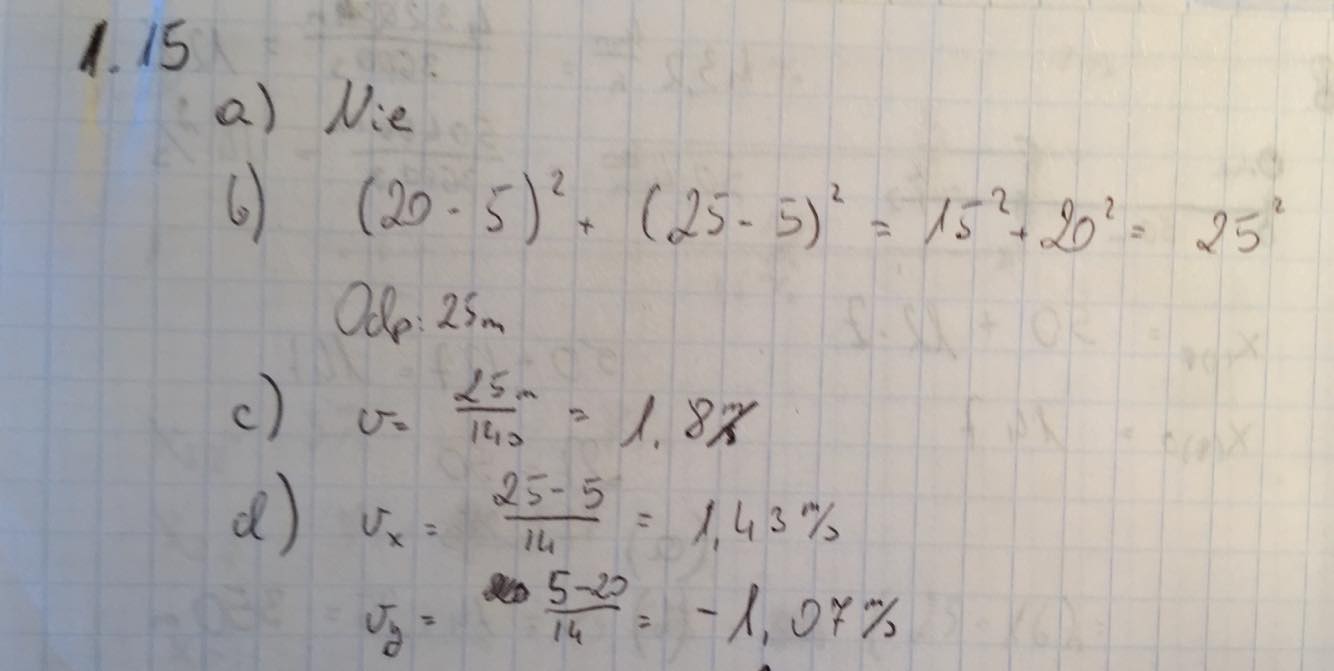 1.15
a) Nie
b) (20 - 5)² + (25 - 5)² = 15² + 20² = 25²
Odp: 25m
c) v = 25m/14s = 1.8 m/s
d) vx = 25 - 5/14 = 1,43 m/s
vy = 5 - 20/14 = -1,07 m/s